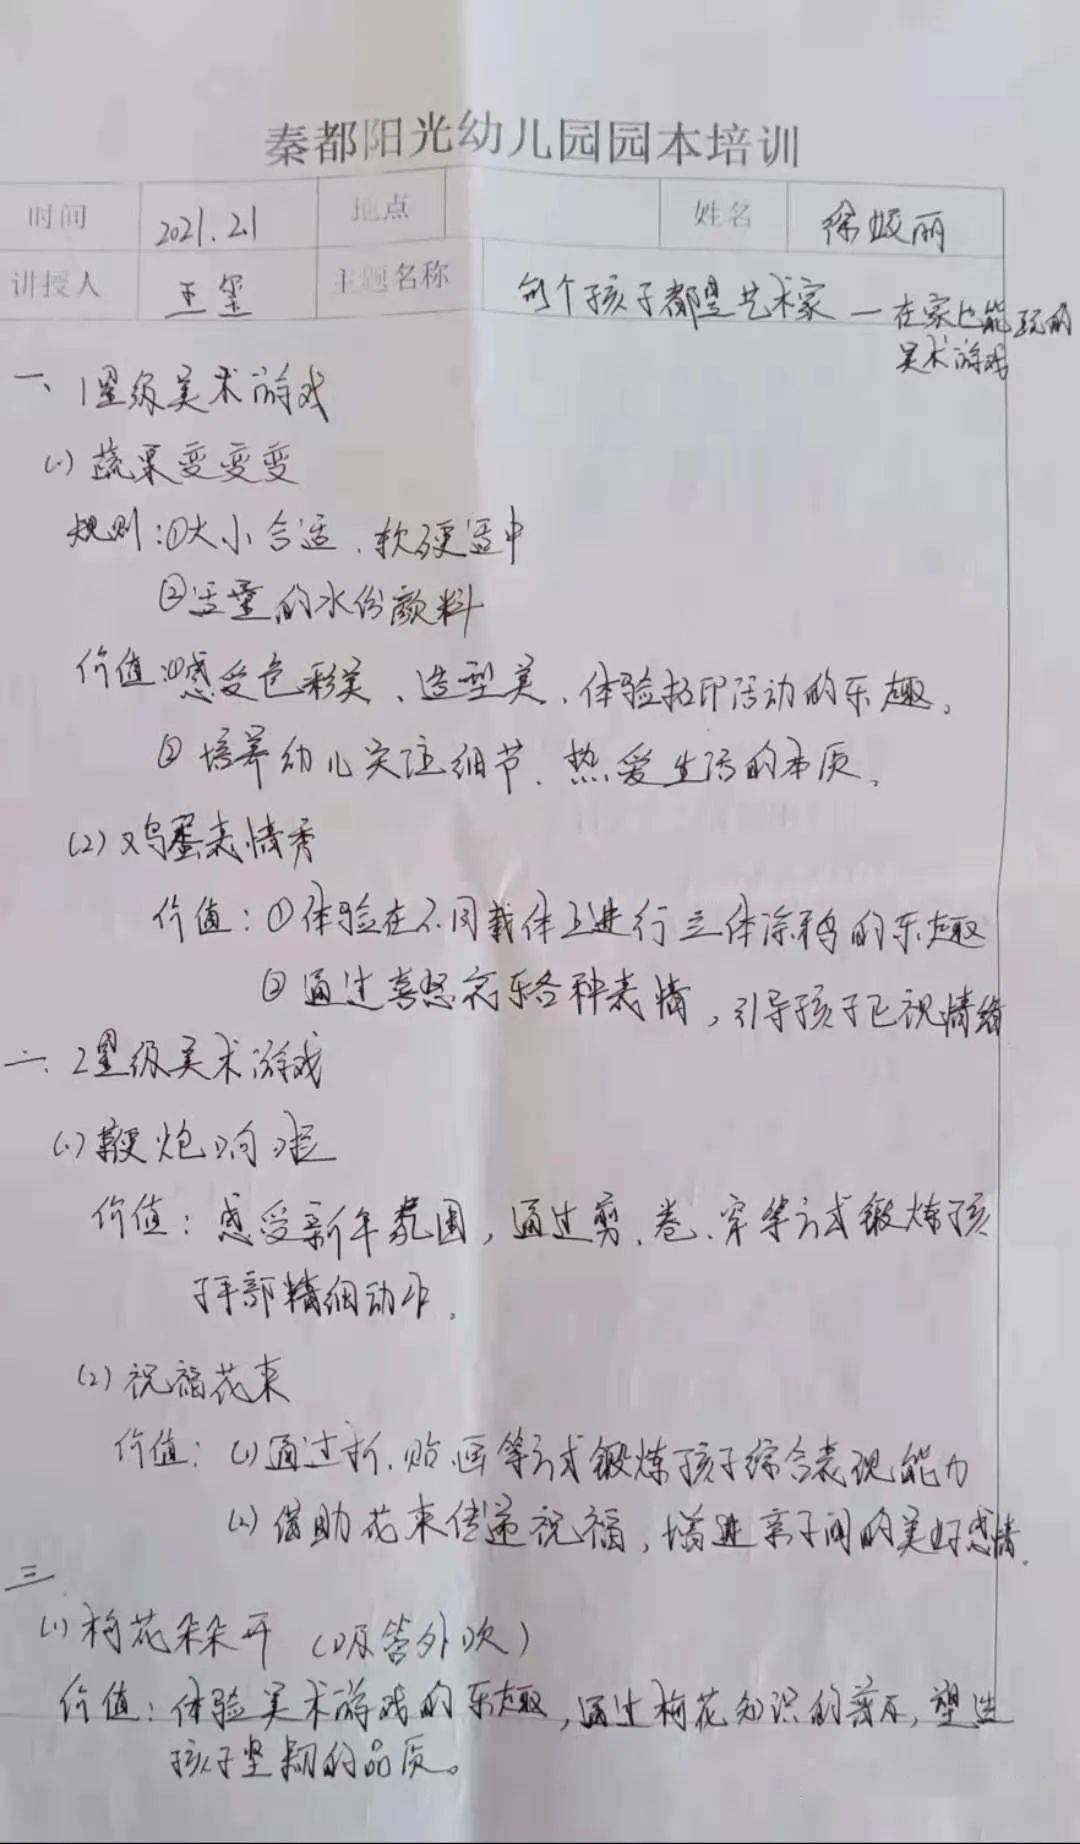 秦都阳光幼儿园园本培训
时间 2021.2.1 地点 姓名 徐姣丽
讲授人 王玺 主题名称 每个孩子都是艺术家—在家也能玩的
美术游戏
一、1星级美术游戏
(1)蔬果变变变
规则:①大小合适、软硬适中
②适量的水份颜料
价值:①感受色彩美、造型美、体验拓印活动的乐趣。
②培养幼儿关注细节、热爱生活的本质。
(2)鸡蛋表情秀
价值:①体验在不同载体上进行立体涂鸦的乐趣
②通过喜怒哀乐各种表情,引导孩子正视情绪
二、2星级美术游戏
(1)鞭炮响啦
价值:感受新年氛围,通过剪、卷、穿等方式锻炼孩
子手部精细动作.
(2)祝福花束
价值:(1)通过折、贴、画等方式锻炼孩子综合表现能力
(2)借助花束传递祝福,增进亲子间的美好感情.
三
(1)梅花朵朵开(吸管外吹)
价值:体验美术游戏的乐趣,通过梅花知识的普及,塑造
孩子坚韧的品质。